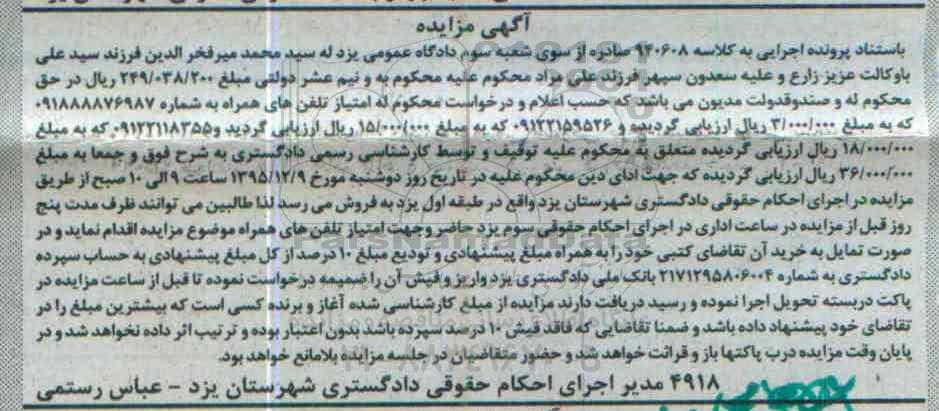 آگهی مزایده
باستناد پرونده اجرایی به کلاسه ۹۴۰۶۰۸ صادره از سوی شعبه سوم دادگاه عمومی یزد له سید محمد میرفخر الدین فرزند سید علی
باوکالت عزیز زارع و علیه سعدون سپهر فرزند علی مراد محکوم علیه محکوم به و نیم عشر دولتی مبلغ ۲۴۹/۰۳۸/۲۰۰ ریال در حق
محکوم له و صندوقدولت مدیون می باشد که حسب اعلام و درخواست محکوم له امتیاز تلفن های همراه به شماره ۰۹۱۸۸۸۸۷۶۹۸۷
که به مبلغ ۳/۰۰۰/۰۰۰ ریال ارزیابی گردیده و ۰۹۱۲۲۱۵۹۵۲۶ که به مبلغ ۱۵/۰۰۰/۰۰۰ ریال ارزیابی گردید و۰۹۱۲۲۱۱۸۳۵۵ که به مبلغ
۱۸/۰۰۰/۰۰۰ ریال ارزیابی گردیده متعلق به محکوم علیه توقیف و توسط کارشناسی رسمی دادگستری به شرح فوق و جمعا به مبلغ
۳۶/۰۰۰/۰۰۰ ریال ارزیابی گردیده که جهت ادای دین محکوم علیه در تاریخ روز دوشنبه مورخ ۱۳۹۵/۱۲/۹ ساعت ۹ الی ۱۰ صبح از طریق
مزایده در اجرای احکام حقوقی دادگستری شهرستان یزد واقع در طبقه اول یزد به فروش می رسد لذا طالبین می توانند ظرف مدت پنج
روز قبل از مزایده در ساعت اداری در اجرای احکام حقوقی سوم یزد حاضر وجهت امتیاز تلفن های همراه موضوع مزایده اقدام نماید و در
صورت تمایل به خرید آن تقاضای کتبی خود را به همراه مبلغ پیشنهادی و تودیع مبلغ ۱۰ درصد از کل مبلغ پیشنهادی به حساب سپرده
دادگستری به شماره ۲۱۷۱۲۹۵۸۰۶۰۰۴ بانک ملی دادگستری یزد واریز و فیش آن را ضمیمه درخواست نموده تا قبل از ساعت مزایده در
پاکت دربسته تحویل اجرا نموده و رسید دریافت دارند مزایده از مبلغ کارشناسی شده آغاز و برنده کسی است که بیشترین مبلغ را در
تقاضای خود پیشنهاد داده باشد و ضمنا تقاضایی که فاقد فیش ۱۰ درصد سپرده باشد بدون اعتبار بوده و ترتیب اثر داده نخواهد شد و در
پایان وقت مزایده درب پاکتها باز و قرائت خواهد شد و حضور متقاضیان در جلسه مزایده بلامانع خواهد بود.
۴۹۱۸ مدیر اجرای احکام حقوقی دادگستری شهرستان یزد - عباس رستمی
ParsNamadData